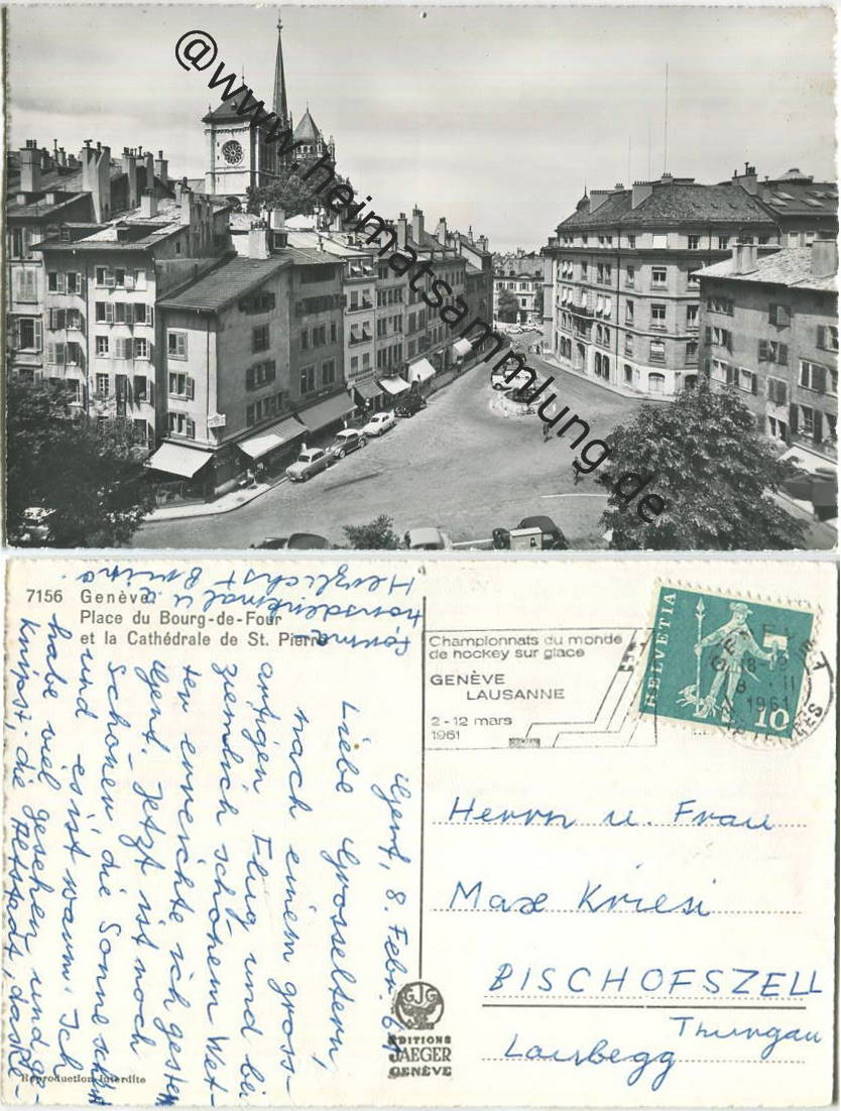 @www.heimatsammlung.de
7156 Genève
Place du Bourg-de-Four
et la Cathédrale de St. Pierre
Genf, 8. Febr. 61
Liebe Grosseltern,
nach einem gross-
artigen Flug und bei
ziemlich schönem Wet-
ter erreichte ich gestern
Genf. – Jetzt ist noch
schöner, die Sonne scheint
und es ist warm. Ich
habe viel gesehen und ge-
knipst: die Altstadt, das Re-
formationsdenkmal u.a.
Herzlichst Bruno.
Reproduction interdite
EDITIONS
JAEGER
GENÈVE
Championnats du monde
de hockey sur glace
GENÈVE
LAUSANNE
2-12 mars
1961
HELVETIA
10
GENEVE 1
18-19
8 II
1961
Herrn u. Frau
Max Kriesi
BISCHOFSZELL
Thurgau